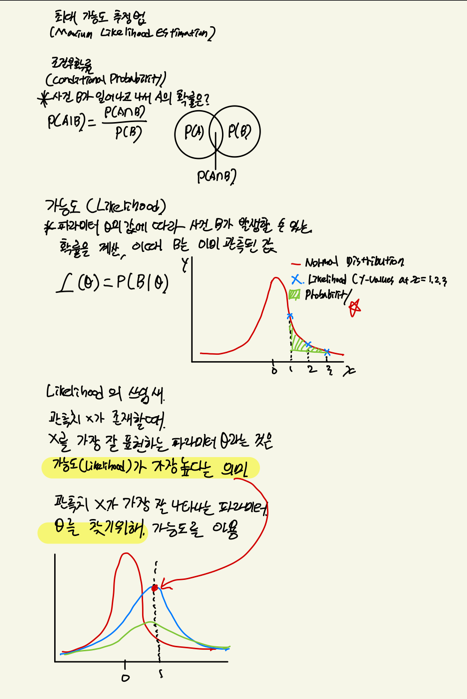 최대 가능도 추정법
(Maxium Likelihood Estimation)
조건부확률
(Conditional Probability)
* 사건 B가 일어나고 나서 A의 확률은?
P(A|B) = P(A∩B) / P(B)
P(A) P(B)
P(A∩B)
가능도 (Likelihood)
* 파라미터 θ의 값에 따라 사건 B가 발생할 수 있는
확률을 계산, 이때 B는 이미 관측된 값
L(θ) = P(B|θ)
Y
— Normal Distribution
× Likelihood (Y-values at x=1,2,3
Probability
0 1 2 3 x
Likelihood의 쓰임새.
관측치 x가 존재할때.
X를 가장 잘 표현하는 파라미터 θ라는 것은
가능도(Likelihood)가 가장 높다는 의미
관측치 X가 가장 잘 나타나는 파라미터
θ를 찾기위해, 가능도를 이용
0 1